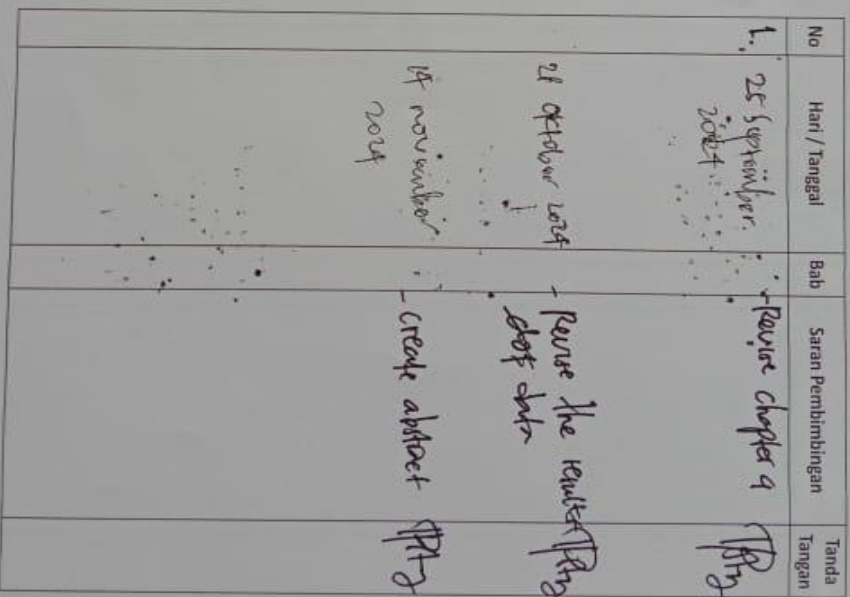 No Hari / Tanggal Bab Saran Pembimbingan Tanda Tangan
1. 25 September 2024 - Revise chapter 4
21 Oktober 2024 - Revise the results of data
14 november 2024 - create abstract